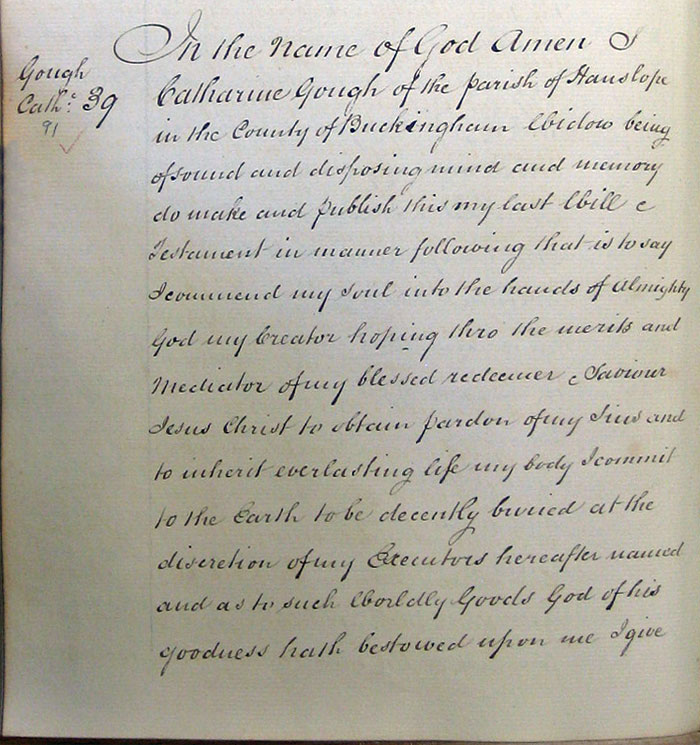 Gough
Cathe: 39
91
In the Name of God Amen I
Catharine Gough of the parish of Hanslope
in the County of Buckingham Widow being
of sound and disposing mind and memory
do make and publish this my last Will &
Testament in manner following that is to say
I commend my soul into the hands of Almighty
God my Creator hoping thro the merits and
Mediator of my blessed redeemer & Saviour
Jesus Christ to obtain pardon of my Sins and
to inherit everlasting life my body I commit
to the Earth to be decently buried at the
discretion of my Executors hereafter named
and as to such Worldly Goods God of his
goodness hath bestowed upon me I give